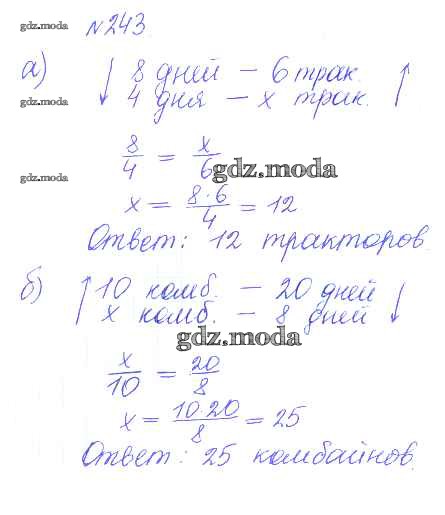 gdz.moda №243
а) 8 дней – 6 трак.
gdz.moda 4 дня – х трак.
8/4 = х/6 gdz.moda
gdz.moda
х = 8·6/4 = 12
Ответ: 12 тракторов.
б) 10 комб. – 20 дней
х комб. – 8 дней
gdz.moda
х/10 = 20/8
х = 10·20/8 = 25
Ответ: 25 комбайнов.